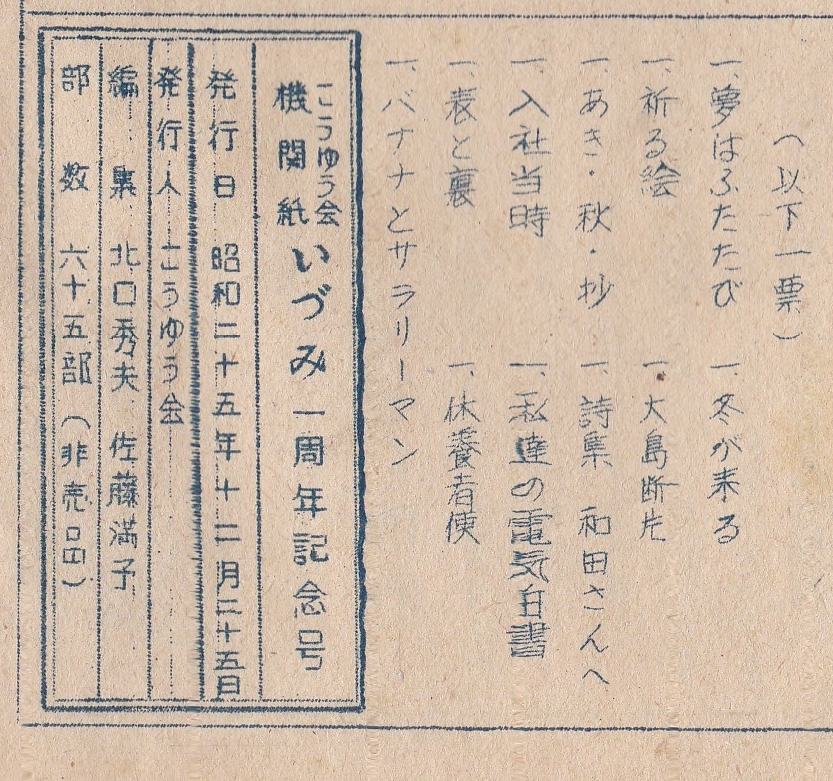 （以下一票）
一、夢はふたたび　一、冬が来る
一、祈る絵　一、大島断片
一、あき・秋・抄　一、詩集　和田さんへ
一、入社当時　一、私達の電気白書
一、表と裏　一、休養者便
一、バナナとサラリーマン
こうゆう会
機関紙　いづみ　一周年記念号
発行日　昭和二十五年十二月二十五日
発行人　こうゆう会
編集　北口秀夫　佐藤満子
部数　六十五部（非売品）